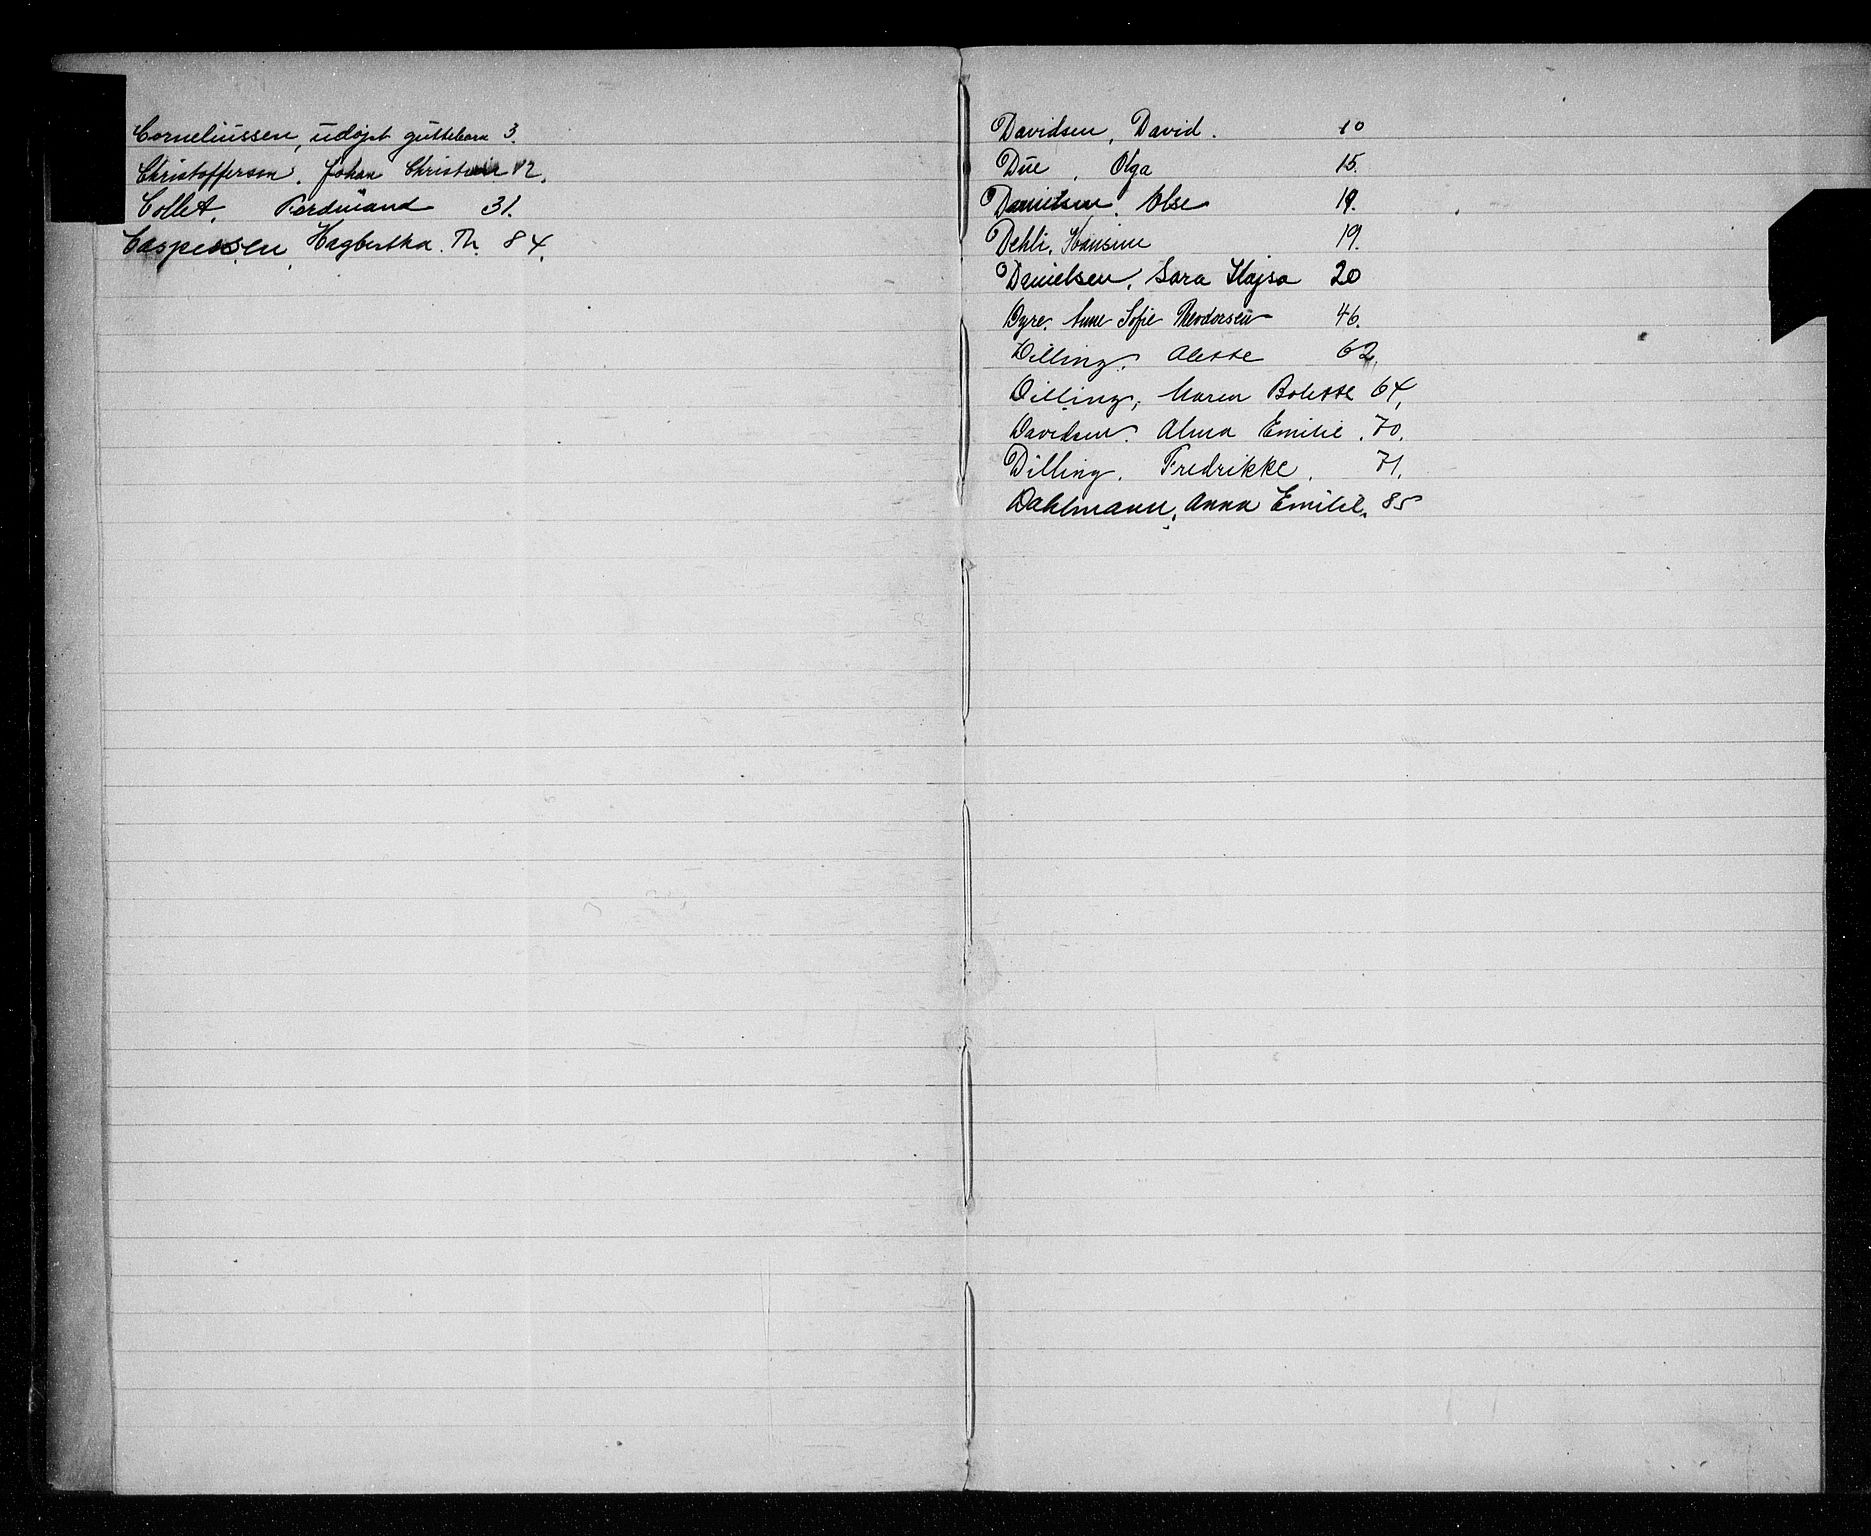 Corneliussen, udøpt guttebarn 3.
Christoffersen. Johan Christian 12.
Collet. Ferdinand 31.
Caspersen. Hagbartha. Th. 84.
Davidsen, David. 10
Due, Olga 15.
Danielsen. Else 19.
Dehli. Hansine 19.
Danielsen. Sara Kajsa 20
Dyre. Anne Sofie Theodorsen 46.
Dilling. Alette 62.
Dilling, Maren Bolette 64.
Davidsen. Alma Emilie. 70.
Dilling. Fredrikke. 71.
Dahlmann, Anna Emilie. 85